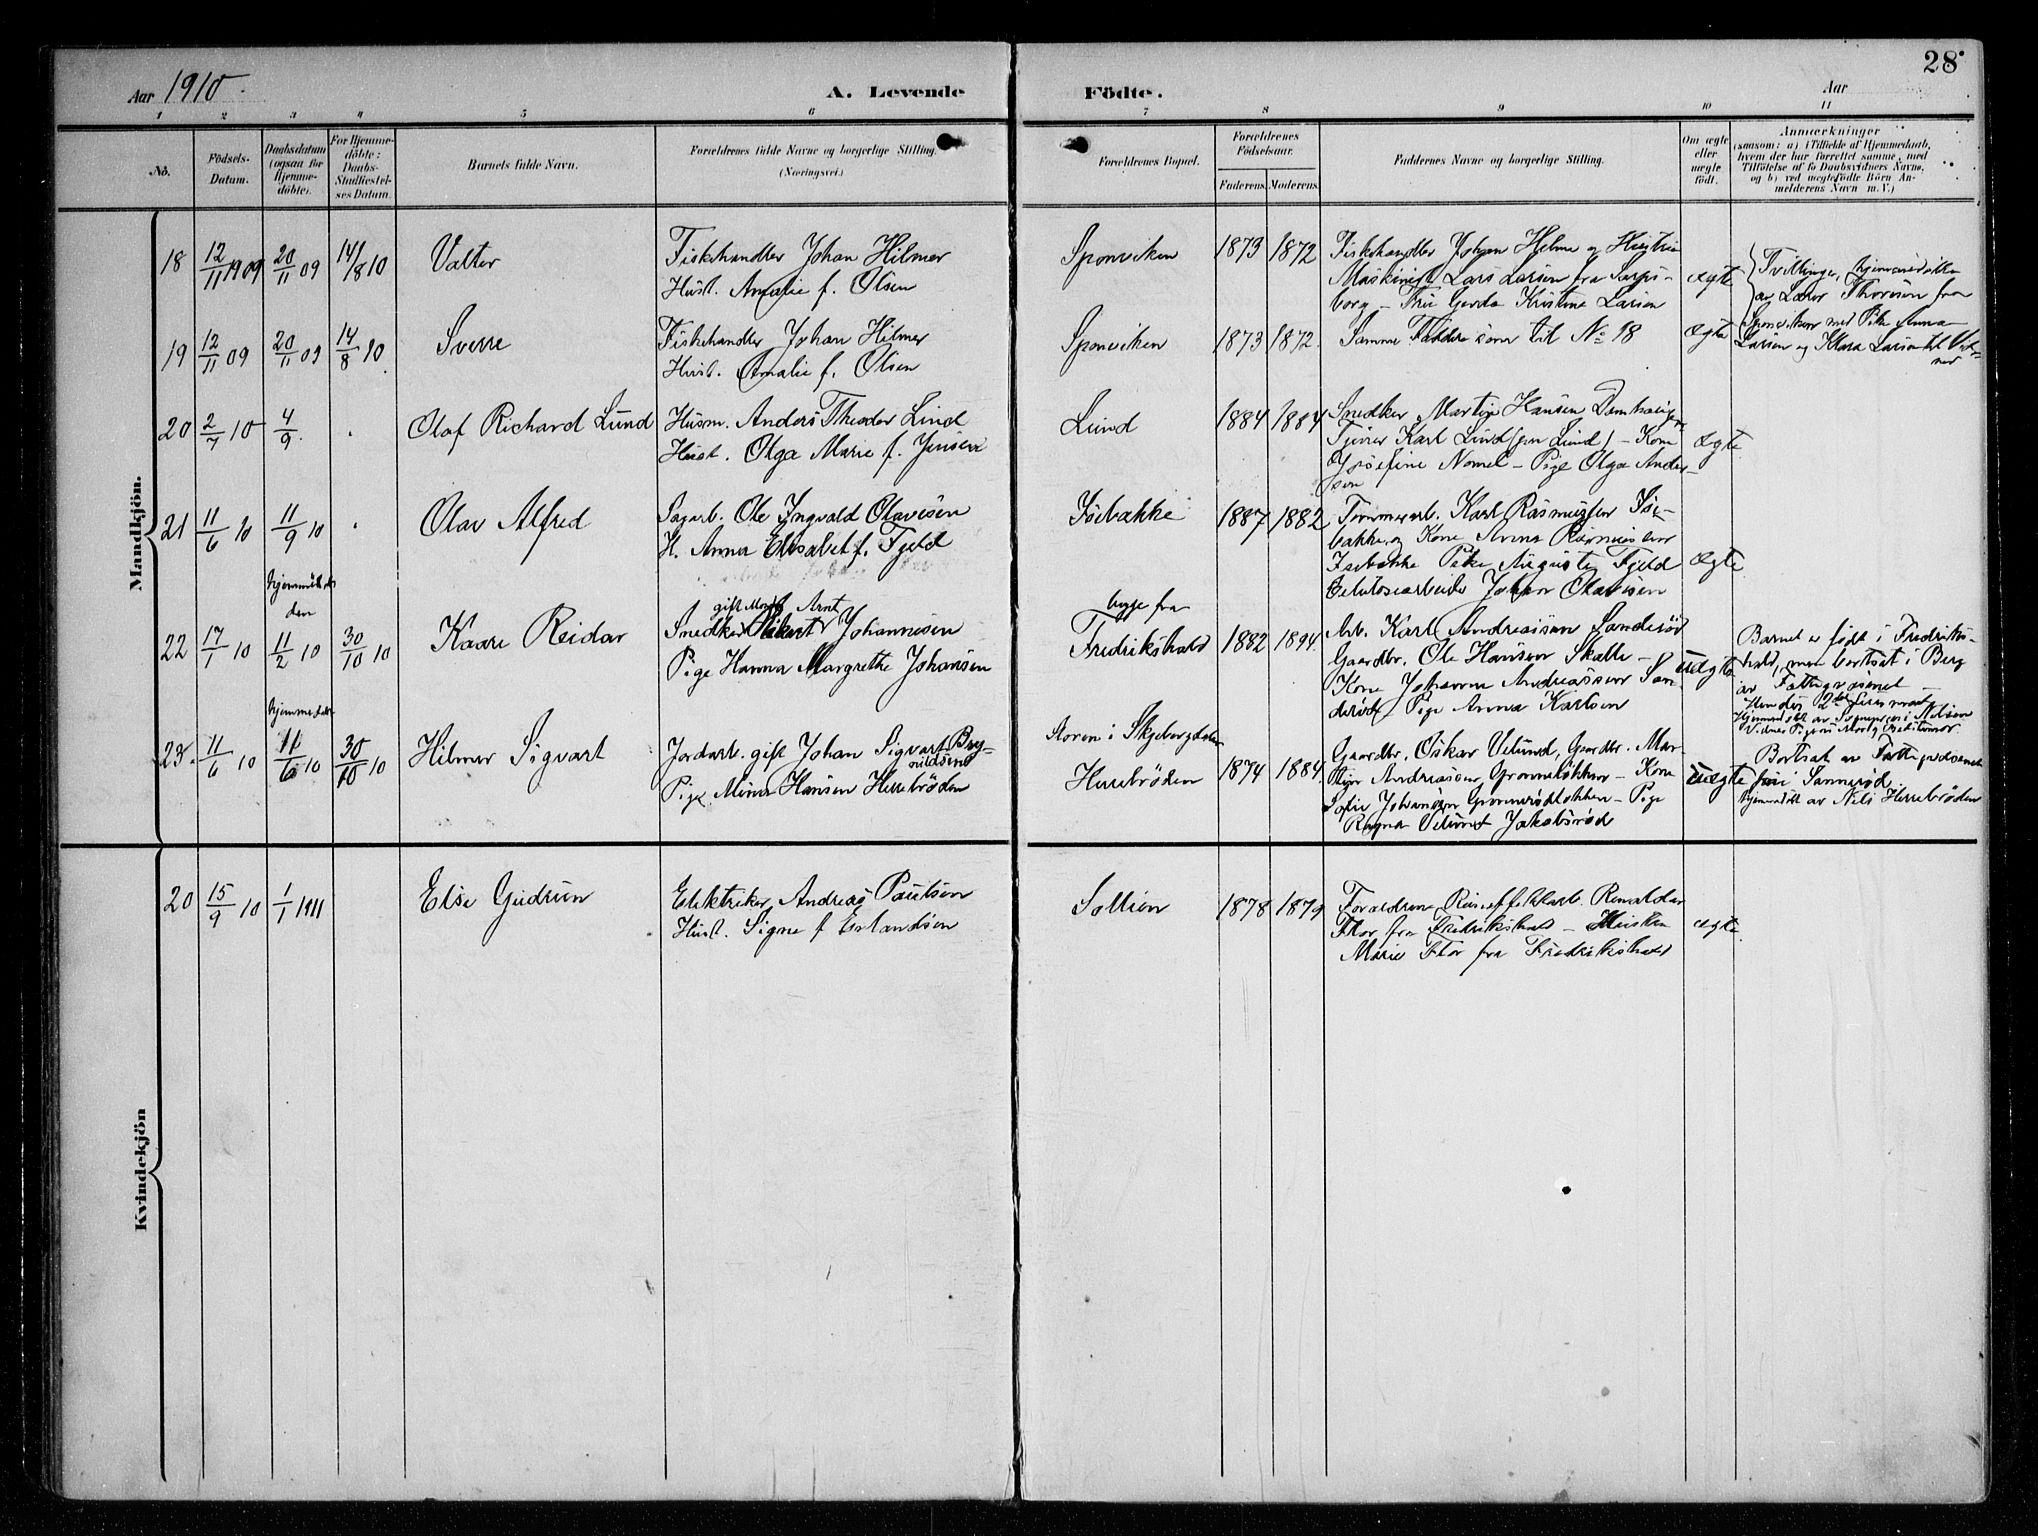 28
Aar 1910.
A. Levende
Födte.
Aar
1 2 3 4 5 6 7 8 9 10 11
No.
Födsels-
Datum.
Daabsdatum
(ogsaa for
Hjemme-
döbte).
For Hjemme-
döbte:
Daabs-
Stadfæstel-
ses Datum.
Barnets fulde Navn.
Forældrenes fulde Navne og borgerlige Stilling.
(Næringsvei.)
Forældrenes Bopæl.
Forældrenes
Födselsaar.
Faderens. Moderens.
Faddernes Navne og borgerlige Stilling.
Om ægte
eller
uægte
født.
Anmærkninger
(saasom: a) i Tilfælde af Hjemmedaab,
hvem der har forrettet samme, med
Tilføielse af to Daabsvidners Navne,
og b) ved uægtefödte Börn An-
melderens Navn m. V.)
Mandkjön.
18 12/11 1909 20/11 09 14/8 10 Valter
Fiskehandler Johan Hilmer
Hust. Amalie f. Olsen
Sponviken 1873 1872
Fiskehandler Johan Hilmer og Hustru
Maskinist Lars Larsen fra Sarps-
borg - Fru Gerda Kristine Larsen
ægte
Tvillinger, hjemmedøbte
av Lærer Thoresen fra
Sponviken med Pike Anna
Larsen og Klara Larsen til Vid-
ner
19 12/11 09 20/11 09 14/8 10 Sverre
Fiskehandler Johan Hilmer
Hust. Amalie f. Olsen
Sponviken 1873 1872.
Samme Faddere som til No 18
ægte
20 2/7 10 4/9. Olaf Richard Lund
Husm. Anders Theodor Lind
Hust. Olga Marie f. Jensen
Lund 1884 1884
Snedker Martin Hansen
Tjener Karl Lund (gen Lund) - Kone
Josefine Nomel - Pige Olga Ander-
sen
ægte
21 11/6 10 11/9 10 Olav Alfred
Sagarb. Ole Ingvald Olavesen
H. Anna Elisabet f. Fjeld
Isebakke 1887 1882
Tømmerarb. Karl Rasmussen Ise-
bakke, og Kone Anna Rasmussen
Isebakke Pike Auguste Fjeld
Celulosearbeider Johan Olavesen
ægte
hjemmedøbt
den
22 17/1 10 11/2 10 30/10 10 Kaare Reidar
gift Arnt
Snedker Johannesen
Pige Hanna Margrethe Johansen
begge fra
Fredrikshald 1882 1894.
Arb. Karl Andreassen Sanderød
Gaardbr. Ole Hansen Skalle -
Kone Johanne Andreassen San-
derød - Pige Anna Karlsen
uægte
Barnet er født i Fredriks-
hald, men bortsat i Berg
av Fattigvæsenet -
Hendes 2det
Hjemmedøbt av Nilsen
hjemmedøbt
23. 11/6 10 11/6 10 30/10 10 Hilmer Sigvart
Jordarb. gift Johan Sigvart Bry-
nildsen
Pige Mina Hansen Herrebrøden
Storen i Skjebergdalen
Herrebrøden 1874 1884
Gaardbr. Oskar Velund, Gaardbr. Mar-
tin Andreassen, Grønneløkken - Kone
Sofie Johansen Grønnerødløkken - Pige
Ragna Velund Jakobsrød
uægte
Bortsat av Fattigvæsenet
i Sannerød
hjemmedøbt av Nils Herrebrøden
Kvindekjön
20 15/9 10 1/1 1911 Else Gudrun
Elektriker Andreas Paulsen
Hust. Signe f. Erlandsen
Sollien 1878 1879
Forældrene, Reinholdar
Flor fra Fredrikshald - Hustru
Marie Flor fra Fredrikshald
ægte